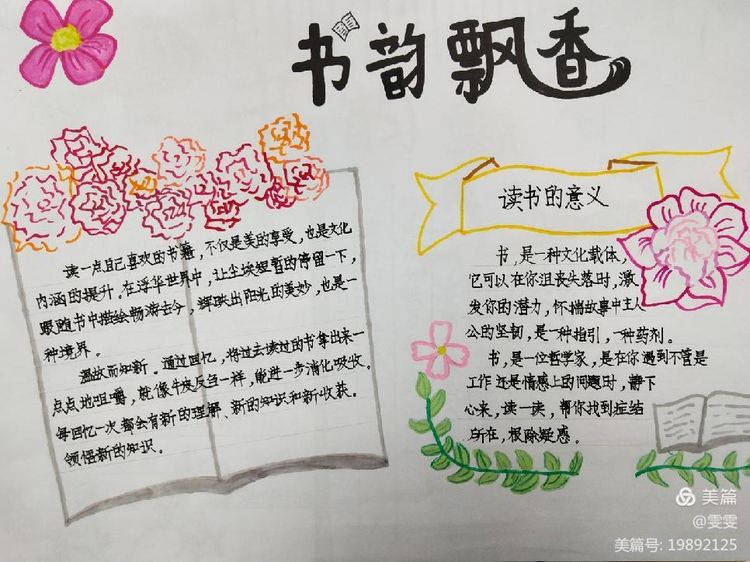 书韵飘香
读一点自己喜欢的书籍，不仅是美的享受，也是文化
内涵的提升。在浮华世界中，让尘埃短暂的停留一下，
跟随书中描绘畅游古今，辉映出阳光的美妙，也是一
种境界。
温故而知新。通过回忆，将过去读过的书拿出来一
点点地咀嚼，就像牛皮反刍一样，能进一步消化吸收。
每回忆一次都会有新的理解、新的知识和新收获。
领悟新的知识。
读书的意义
书，是一种文化载体，
它可以在你沮丧失落时，激
发你的潜力，怀揣故事中主人
公的坚韧，是一种指引，一种药剂。
书，是一位哲学家，是在你遇到不管是
工作还是情感上的问题时，静下
心来，读一读，帮你找到症结
所在，根除疑惑。
美篇
@雯雯
美篇号: 19892125